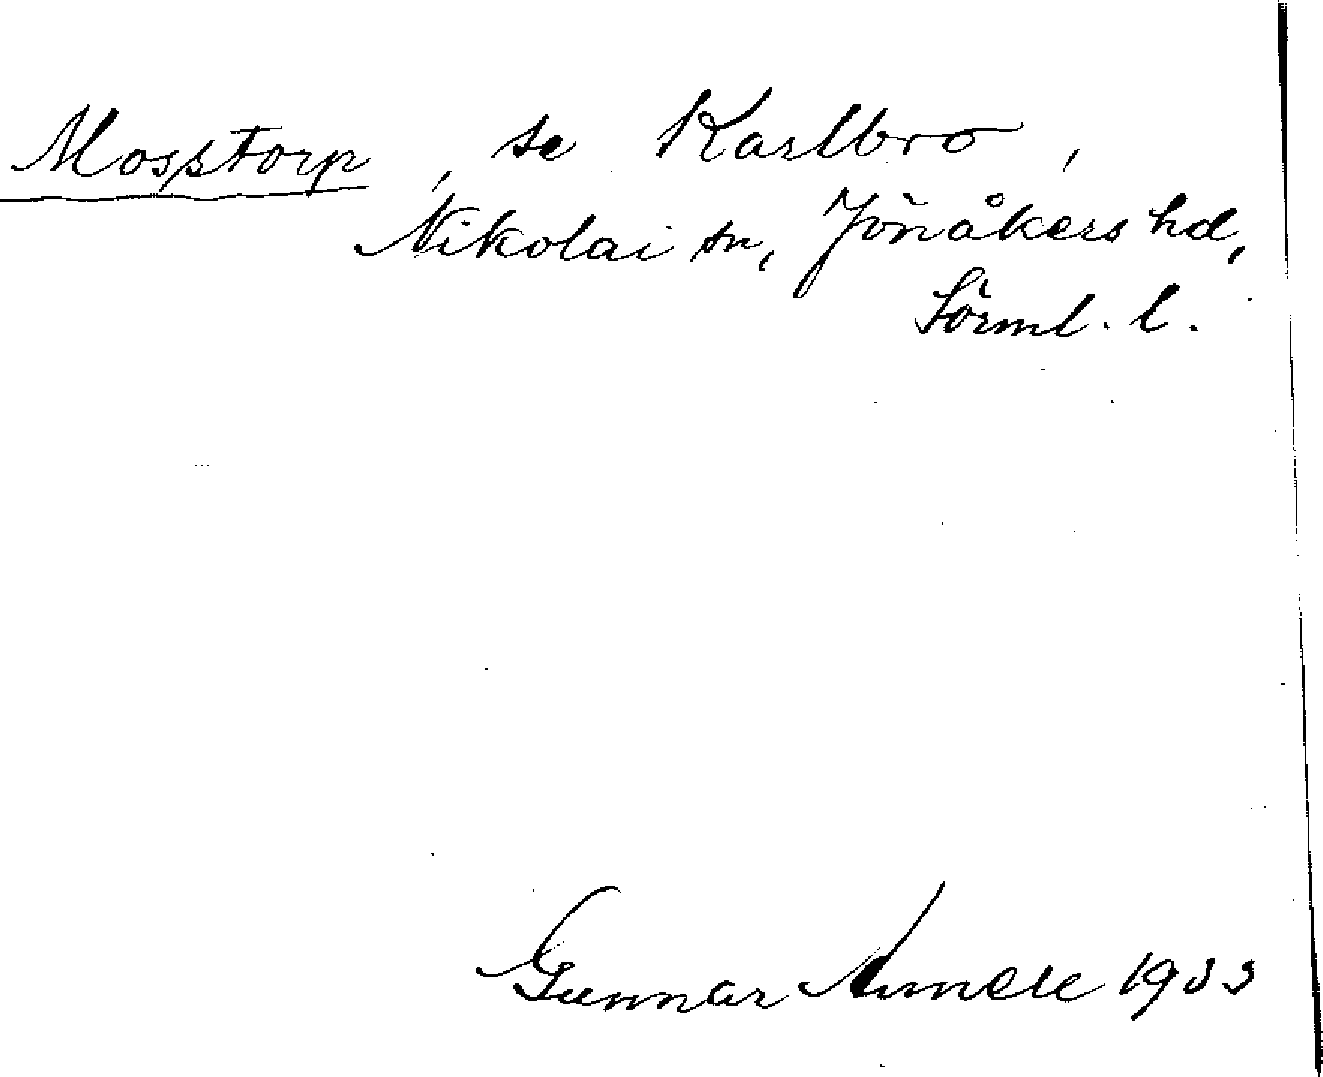 Mosstorp, se Karlbro,
Nikolai sn, Jönåkers hd,
Sörml. l.
Gunnar 1933